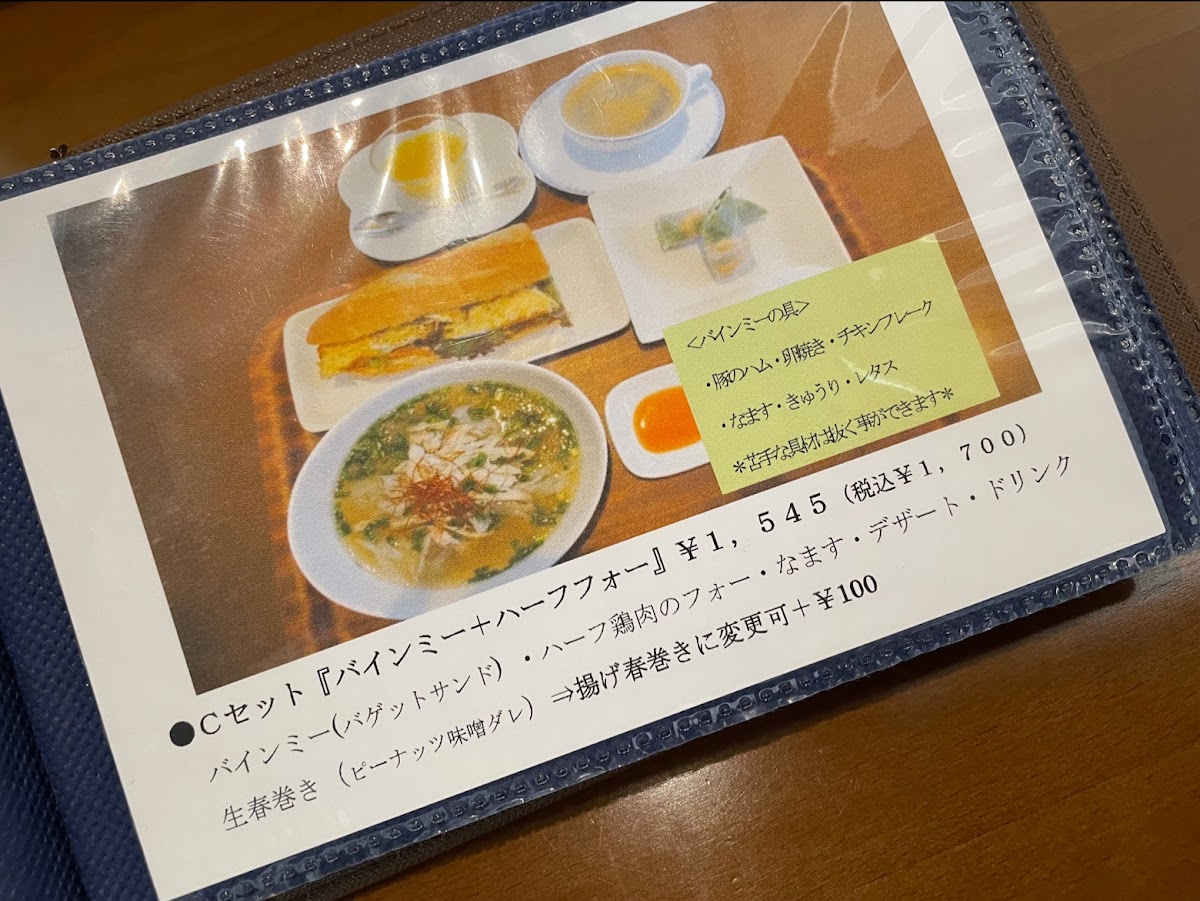 <バインミーの具>
・豚のハム・卵焼き・チキンフレーク
・なます・きゅうり・レタス
*苦手な具材は抜く事ができます*
●Cセット『バインミー+ハーフフォー』¥1,545(税込¥1,700)
バインミー(バゲットサンド)・ハーフ鶏肉のフォー・なます・デザート・ドリンク
生春巻き(ピーナッツ味噌ダレ)⇒揚げ春巻きに変更可+¥100